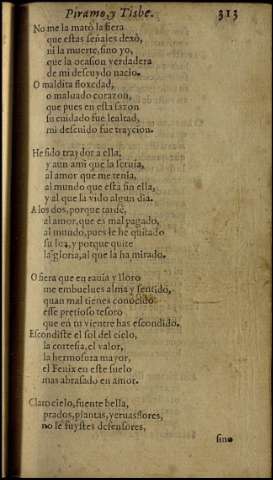 Piramo, y Tisbe. 313
No me la matò la fiera
que estas señales dexò,
ni la muerte, sino yo,
que la ocasion verdadera
de mi descuydo nacio.
O maldita floxedad,
o maluado coraçon,
que pues en esta sazon
su cuidado fue lealtad,
mi descuido fue traycion.
He sido traydor a ella,
y aun a mi que la seruia,
al amor que me tenia,
al mundo que està sin ella,
y al que la vido algun dia.
A los dos, porque tardè,
al amor, que es mal pagado,
al mundo, pues le he quitado
su luz, y porque quitè
la gloria, al que la ha mirado.
O fiera que en rauia y lloro
me embuelues alma y sentido,
quan mal tienes conocido
esse precioso tesoro
que en tu vientre has escondido.
Escondiste el sol del cielo,
la cortesia, el valor,
la hermosura mayor,
el Fenix en este suelo
mas abrasado en amor.
Claro cielo, fuente bella,
prados, plantas, yeruas flores,
no le fuystes defensores,
sino